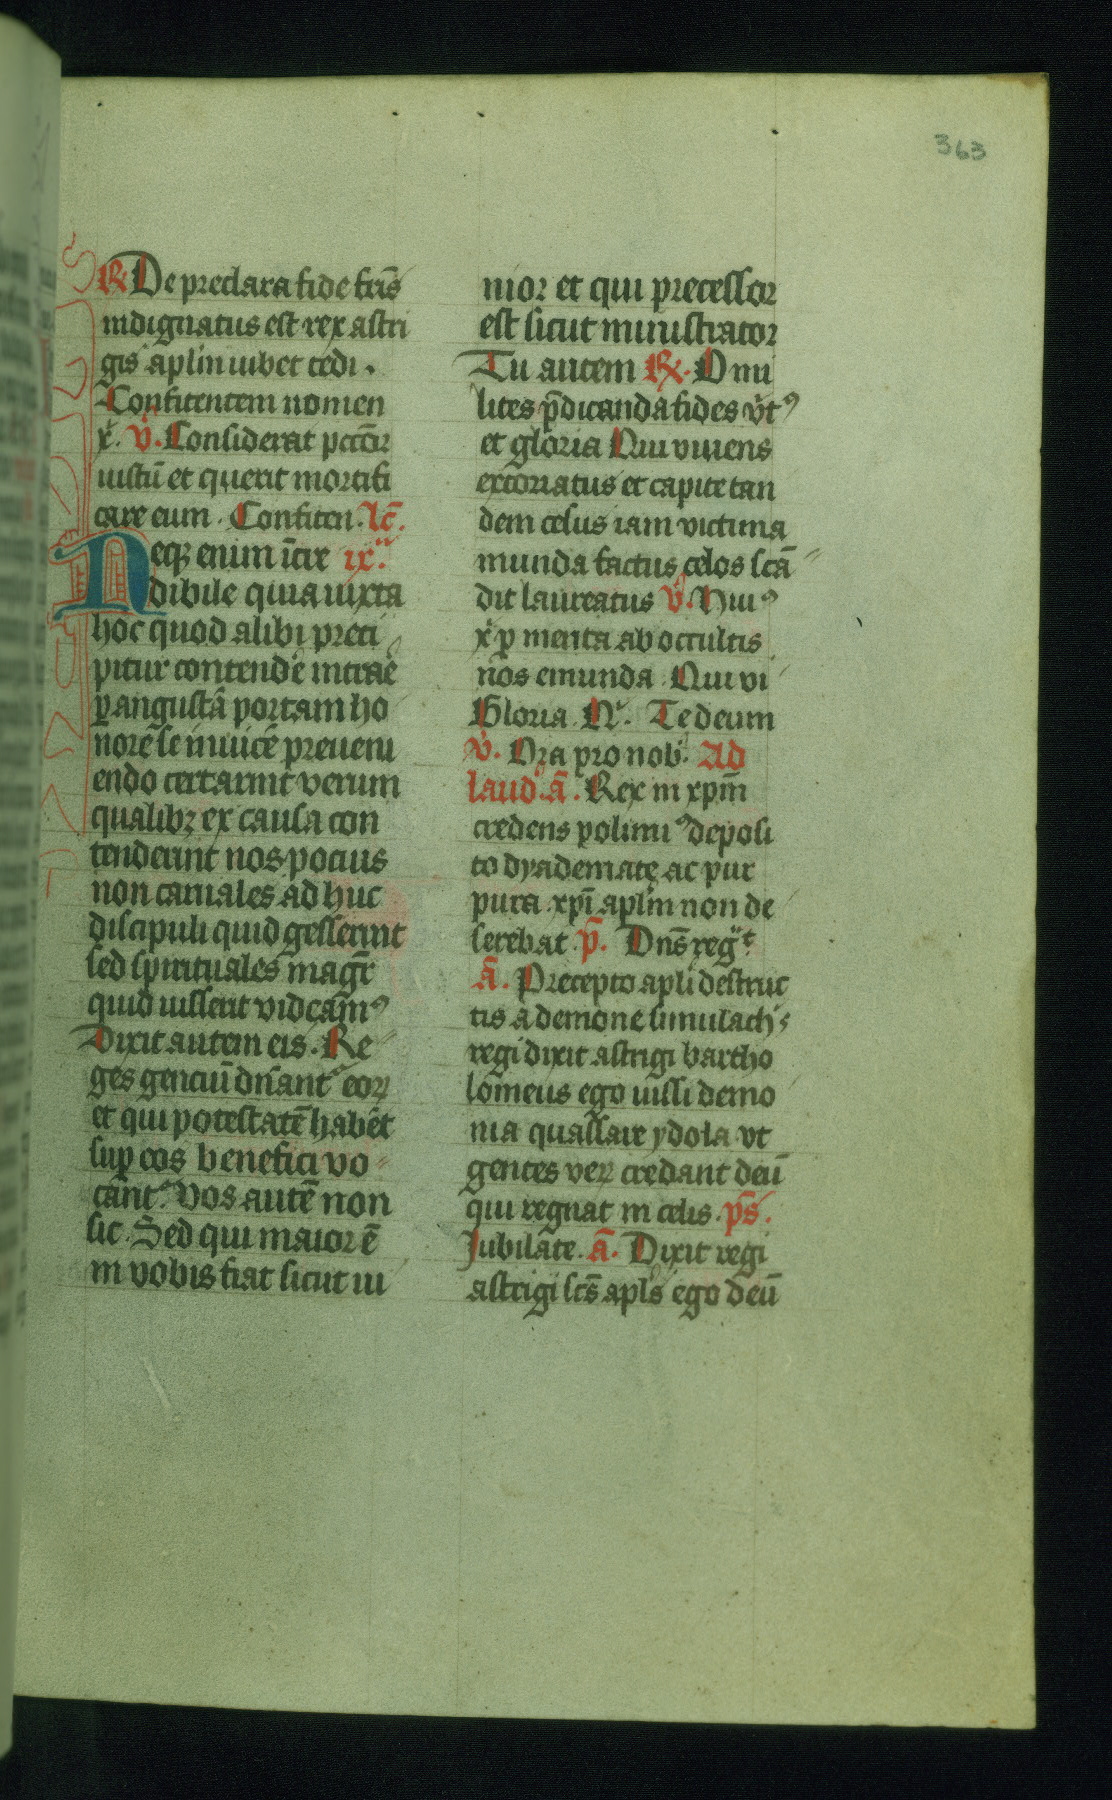 363
R̶ De preclara fide fr̄is
indignatus est rex astri
gis apl̄m iubet cedi.
Confitentem nomen
x̄. V̊. Considerat pctōr
iustū et querit mortifi
care eum. Confiten. lc̄.
Neqꝫ enim īcre ix.ᵃ
dibile quia iuxta
hoc quod alibi preci
pitur contendē intrae
ꝑ angustā portam ho
norē se inuicē preueni
endo certarint verum
qualibꝫ ex causa con
tenderint nos pocius
non carnales ad huc
discipuli quid gesserint
sed spirituales magr̄
quid iusserit videam⁹
Dixit autem eis. Re
ges genciū dn̄ant eoꝝ
et qui potestatē habēt
suꝑ eos benefici vo
cant. Vos autē non
sic. Sed qui maior ē
in vobis fiat sicut iu
nior et qui precessor
est sicut ministrator
Tu autem R̶. O mi
lites p̄dicanda fides v̄t⁹
et gloria Qui viuens
excoriatus et capite tan
dem celsus iam victima
munda factus celos scā
dit laureatus V̊. Hui⁹
x̄p̄ merita ab occultis
nos emunda Qui vi
Gloria Nᵃ. Te deum
V̊. Ora pro nob. Ad
laud. ā. Rex in xpm̄
credens polimi⁹ deposi
to dyademate ac pur
pura xp̄i apl̄m non de
serebat. p̄. Dn̄s regᵘᵗ
ā. Precepto apl̄i destruc
tis a demone simulachꝭ
regi dixit astrigi bartho
lomeus ego iussi demo
nia quassare ydola vt
gentes veꝝ credant deū
qui regnat in celis. ps̄.
Iubilate. ā. Dixit regi
astrigi sc̄s apl̄s ego deū